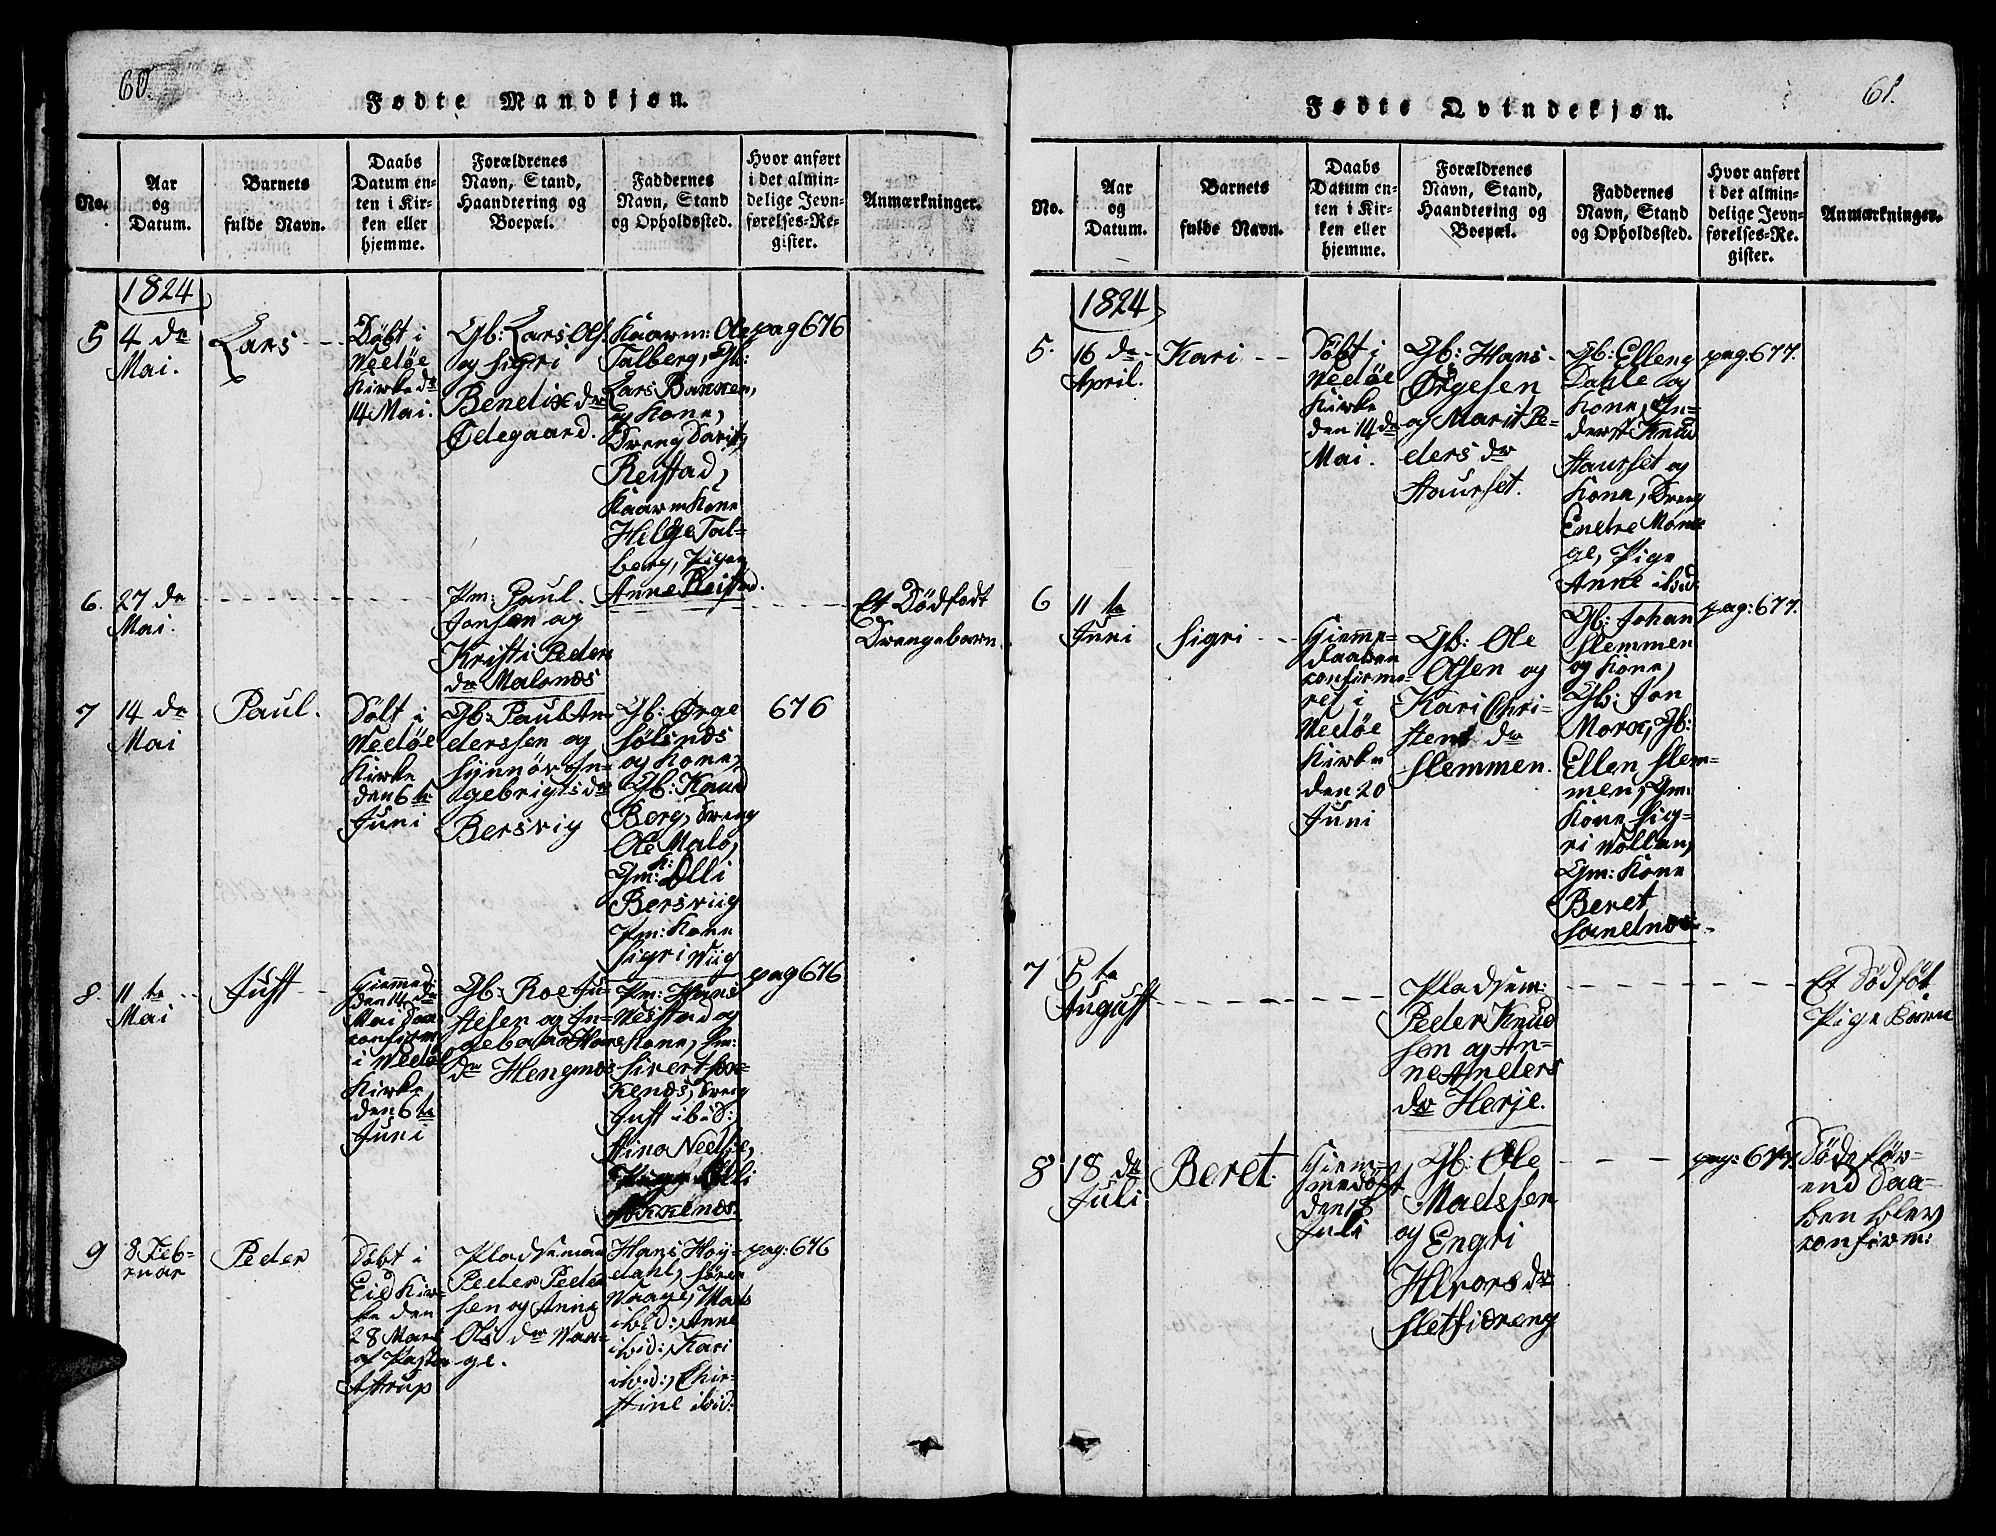 60.
Fødte Mandkjøn.
No.
Aar
og
Datum.
Barnets
fulde Navn.
Daabs
Datum en-
ten i Kir-
ken eller
hjemme.
Forældrenes
Navn, Stand,
Haandtering og
Boepæl.
Faddernes
Navn, Stand
og Opholdssted.
Hvor anført
i det almin-
delige Jevn-
førelses-Re-
gister.
Anmærkninger.
1824
5
4 de
Mai.
Lars
Døbt i
Vedøe
Kirke d:
14 Mai.
Gb: Lars Ols:
og Sigri
Benedix dr
Ødegaard.
Kaarm: Ole
Talberg, Gb:
Lars Bakken,
og Kone,
Dreng
Reistad,
Kaarm Kone
Helge Tal-
berg, Pigen
Anne Reistad.
pag 676
6.
27 de
Mai.
Pm: Paul
Jonsen og
Kristi Peders
dr Malonæs
Et Dødfødt
Drengebarn.
7
14 de
Mai
Paul.
Døbt i
Vedøe
Kirke
den 6 te
Juni
Gb: Paul An-
derssen og
Synnøv In-
gebrigts dr
Bersvig
Gb: Ørge
Sølsnæs
og Kone,
Gb: Knud
Berg, Dreng
Ole Malo,
Gm: K: Olli
Bersviig
Pm: Kone
Sigri Viig
676
8.
11 te
Mai
Just
Hjemmed:
den 14 de
Mai Daa:
confirm
i Vedøe
Kirke
den 6 te
Juni
Gb: Roe Ju-
stesen og In-
geborg Hans
dr Hengnæs
Pm: Hans
Vestad og
Kone, Pm:
Sivert Sæk-
kenæs, Dreng
Just ibid:
Stina Nedse,
Pige Olli
Sækkenæs.
pag 676
9
8 Feb-
ruar
Peder
Døbt i
Eid Kir-
ke den
28 Mars
af Pastor
Astrup
Pladsemand
Peder Peder
sen og Anne
Ols dr Vaa-
ge.
Hans Høy-
dahl, Søren
Vaage, Mads
ibid:, Anne
ibid:, Kari
ibid:, Chir-
stine ibid:
pag: 676
61.
Fødte Qvindekjøn.
No.
Aar
og
Datum.
Barnets
fulde Navn.
Daabs
Datum en-
ten i Kir-
ken eller
hjemme.
Forældrenes
Navn, Stand,
Haandtering og
Boepæl.
Faddernes
Navn, Stand
og Opholdssted.
Hvor anført
i det almin-
delige Jevn-
førelses-Re-
gister.
Anmærkninger.
1824
5.
16 de
April.
Kari
Døbt i
Vedøe
Kirke
den 14 de
Mai.
Gb: Hans
Ørgesen
og Marit Pe-
ders dr
Staurset.
Gb: Elleng
Dahle og
Kone, In-
derst Knud
Staurset og
Kone, Dreng
Endre Møn-
ge, Pige
Anne ibid
pag: 677.
6
11 te
Juni
Sigri
Hjemme-
daaben
confirme-
ret i
Vedøe
Kirke
den 20
Juni
Gb: Ole
Olsen og
Kari Chri-
stens dr
Slemmen.
Gb: Johan
Slemmen
og Kone,
Gb: Jon
Moræ, Gb:
Ellen Slem-
men, Gm:
Kone Sig-
ri Vollan,
Gm: Kone
Beret
Sandnæs.
pag: 677.
7
5 te
August
Pladsem:
Peder Knud
sen og An-
ne Anders
dr Herje.
Et Dødføt
Pige Barn
8
18 de
Juli
Beret.
Hjem-
medøbt
den 18
Juli
Gb: Ole
Madssen
og Engri
Halvors dr
Sletfidreng
pag: 677.
Døde før-
end Daa-
ben blev
confirm: